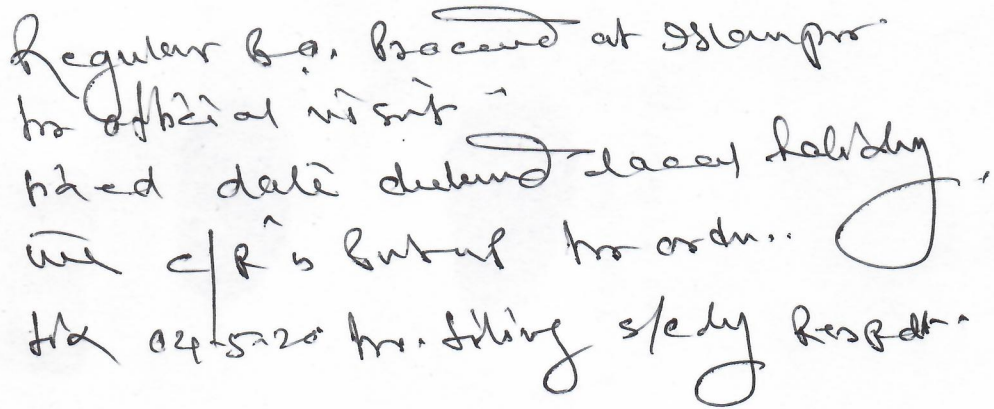 Regular B.O. Proceed at Islampur
for official visit
fixed date declared local holiday.
The C/R is put up for order..
fix 04-5-20 for filing s/edy Respdt..